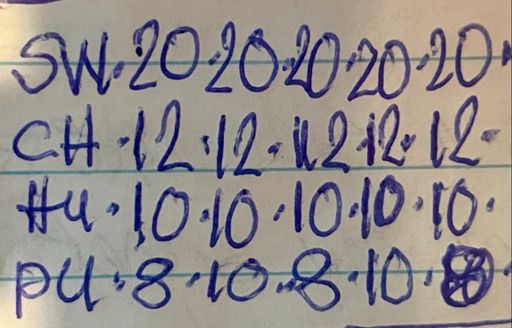 SW·20·20·20·20·20·
CH·12·12·12·12·12·
HU·10·10·10·10·10·
PU·8·10·8·10·